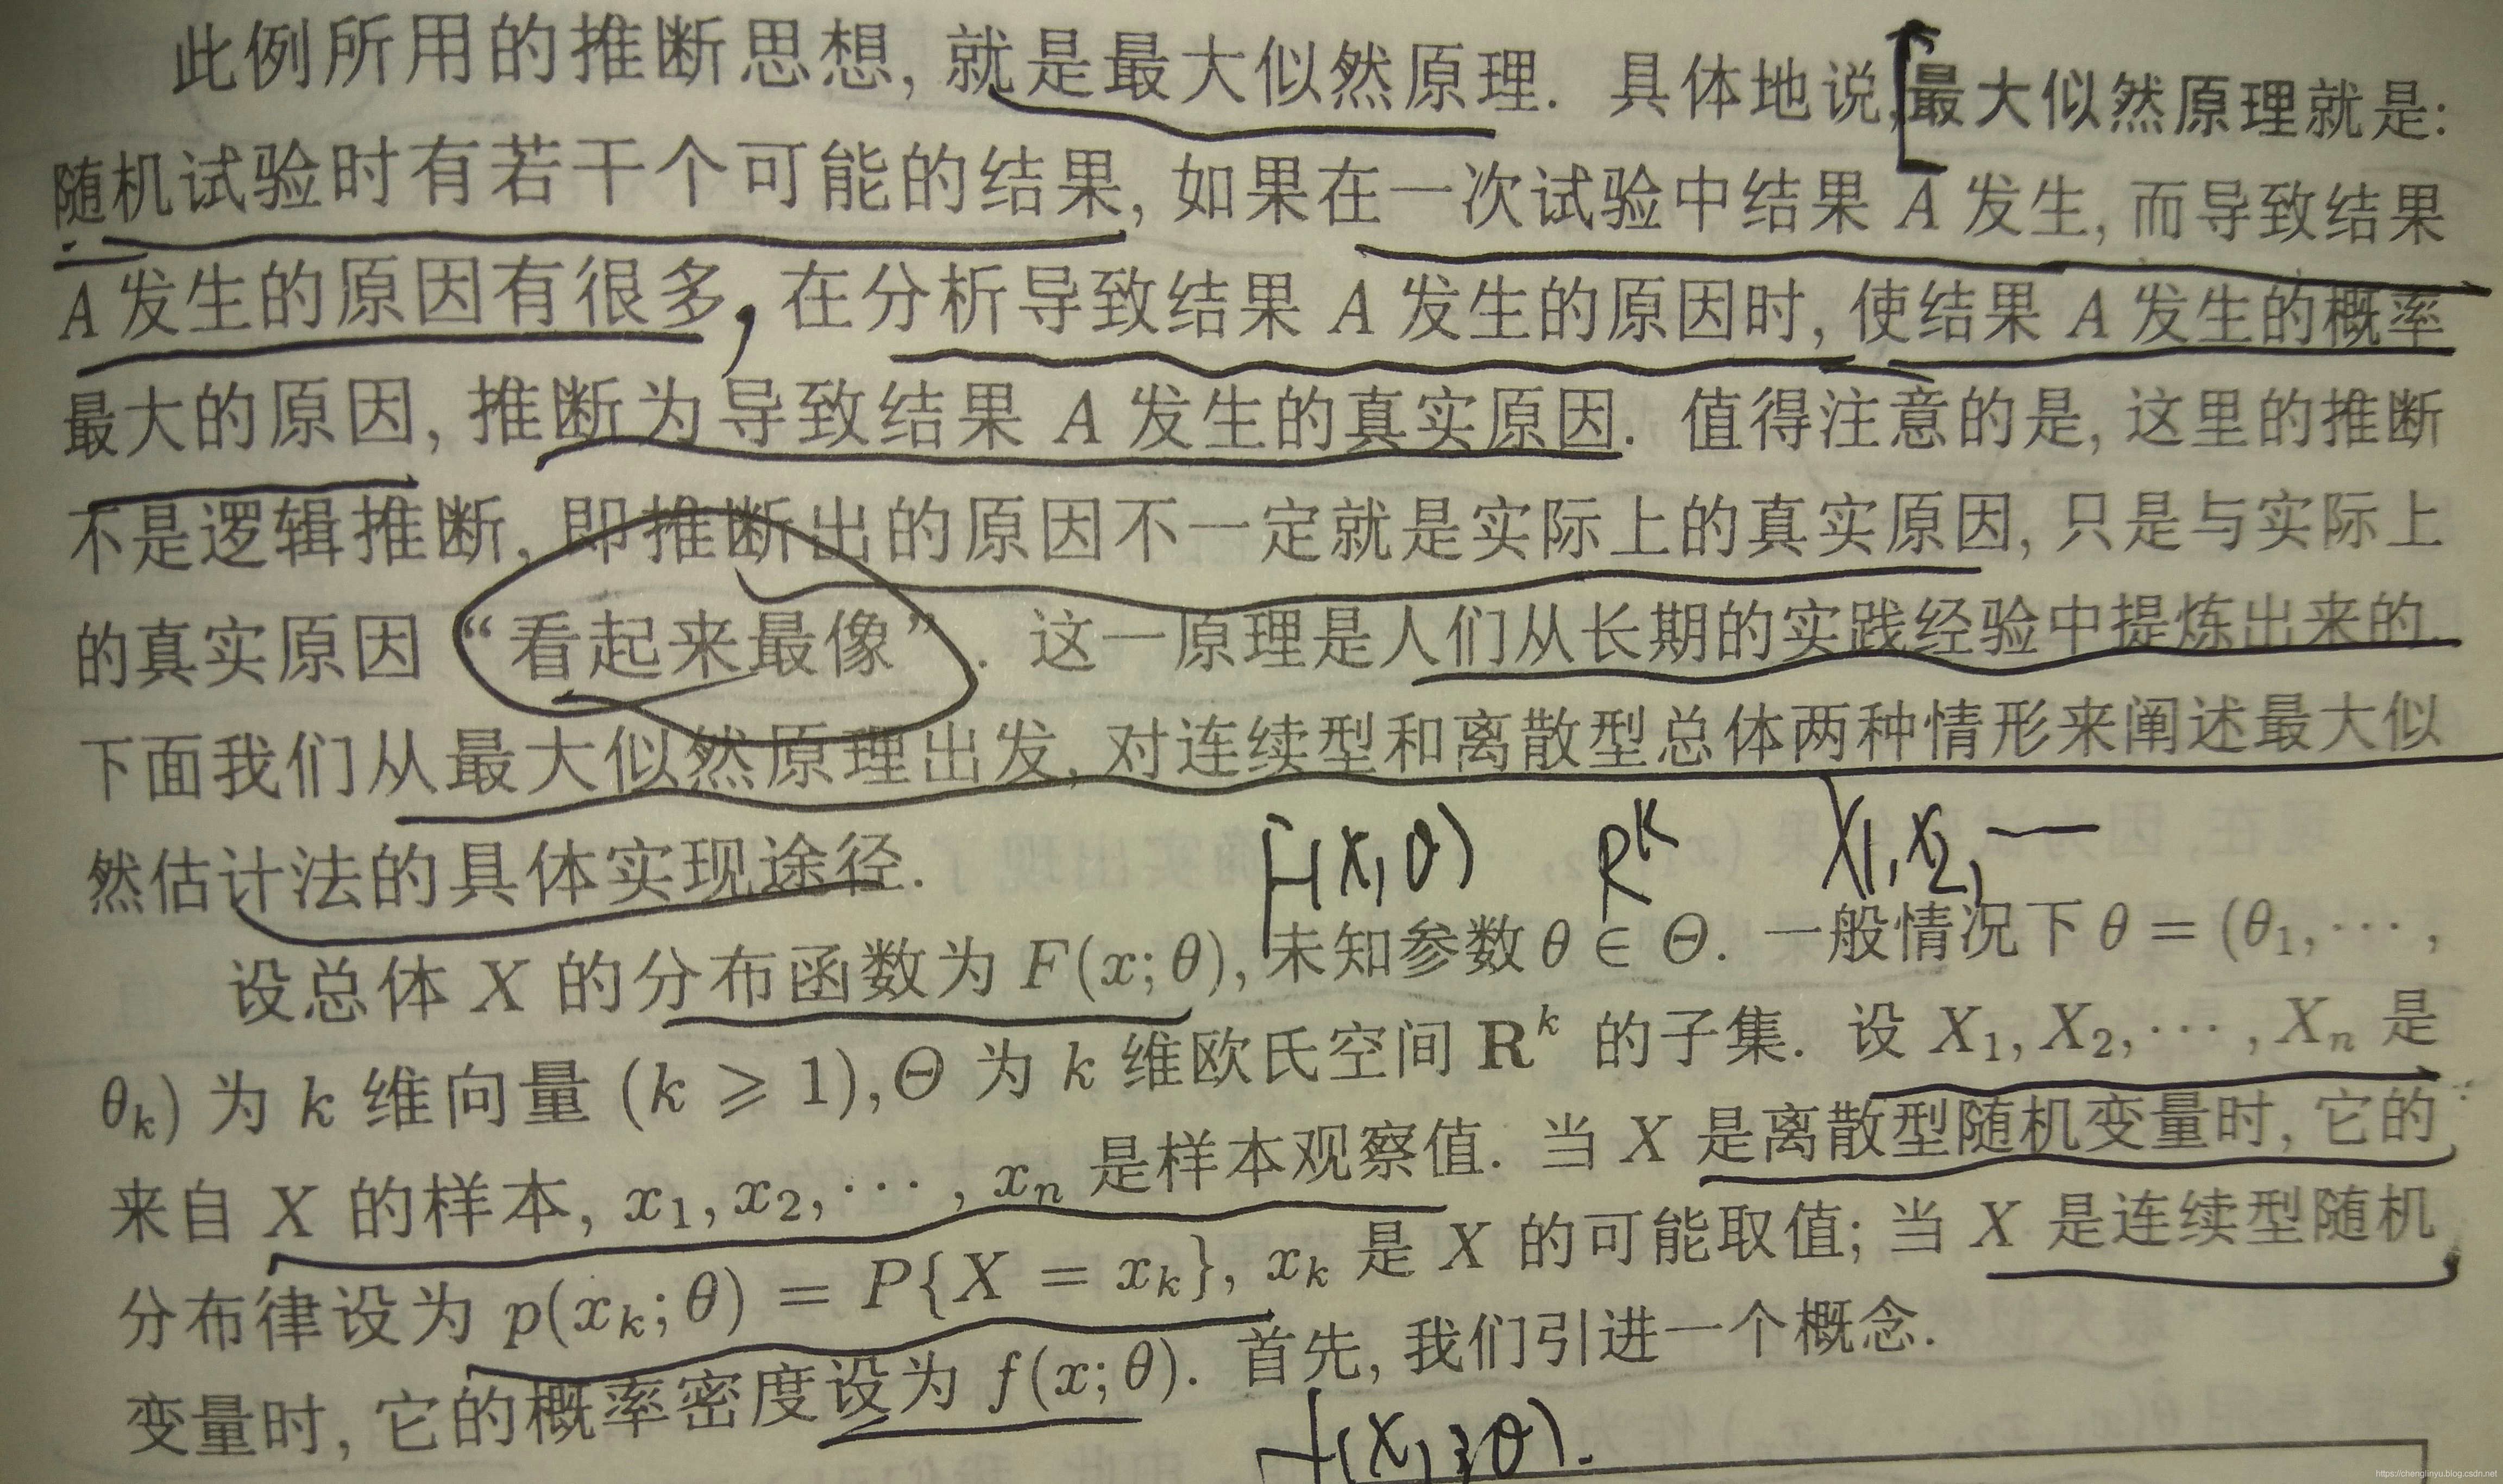 此例所用的推断思想, 就是最大似然原理. 具体地说,最大似然原理就是:
随机试验时有若干个可能的结果, 如果在一次试验中结果 A 发生, 而导致结果
A 发生的原因有很多, 在分析导致结果 A 发生的原因时, 使结果 A 发生的概率
最大的原因, 推断为导致结果 A 发生的真实原因. 值得注意的是, 这里的推断
不是逻辑推断, 即推断出的原因不一定就是实际上的真实原因, 只是与实际上
的真实原因 “看起来最像”. 这一原理是人们从长期的实践经验中提炼出来的.
下面我们从最大似然原理出发, 对连续型和离散型总体两种情形来阐述最大似
然估计法的具体实现途径.
F(x, θ) R^k X1, X2, —
设总体 X 的分布函数为 F(x; θ), 未知参数 θ ∈ Θ. 一般情况下 θ = (θ₁, ⋯ ,
θₖ) 为 k 维向量 (k ⩾ 1), Θ 为 k 维欧氏空间 Rᵏ 的子集. 设 X₁, X₂, ⋯ , Xₙ 是
来自 X 的样本, x₁, x₂, ⋯ , xₙ 是样本观察值. 当 X 是离散型随机变量时, 它的
分布律设为 p(xₖ; θ) = P{X = xₖ}, xₖ 是 X 的可能取值; 当 X 是连续型随机
变量时, 它的概率密度设为 f(x; θ). 首先, 我们引进一个概念.
https://chenglinyu.blog.csdn.net